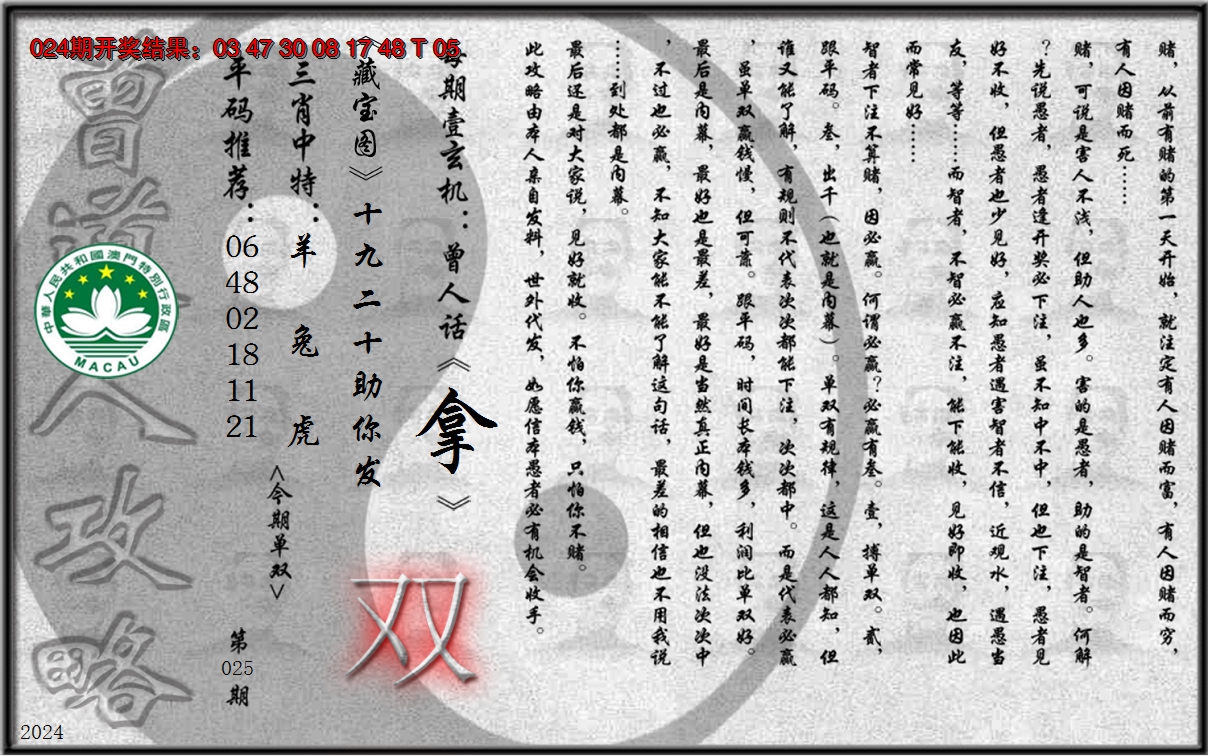 024期开奖结果：03 47 30 08 17 48 T 05
赌，从前有赌的第一天开始，就注定有人因赌而富，有人因赌而穷，
有人因赌而死……
赌，可说是害人不浅，但助人也多。害的是愚者，助的是智者。何解
？先说愚者，愚者逢开奖必下注，虽不知中不中，但也下注，愚者见
好不收，但愚者也少见好，应知愚者遇害智者不信，近观水，遇愚当
友，等等……而智者，不智必赢不注，能下能收，见好即收，也因此
而常见好……
智者下注不算赌，因必赢。何谓必赢？必赢有叁。壹，搏单双。贰，
跟平码。叁，出千（也就是内幕）。单双有规律，这是人人都知，但
谁又能了解，有规则不代表次次都能下注，次次都中。而是代表必赢
，虽单双赢钱慢，但可靠。跟平码，时间长本钱多，利润比单双好。
最后是内幕，最好也是最差，最好是当然真正内幕，但也没法次次中
，不过也必赢，不知大家能不能了解这句话，最差的相信也不用我说
……到处都是内幕。
最后还是对大家说，见好就收。不怕你赢钱，只怕你不赌。
此攻略由本人亲自发料，世外代发，如愿信本愚者必有机会收手。
每期壹玄机：曾人话《拿》
《藏宝图》十九二十助你发
双
三肖中特：羊 兔 虎
<今期单双>
平码推荐：06 48 02 18 11 21
第025期
曾道人攻略
中華人民共和國澳門特別行政區
MACAU
2024